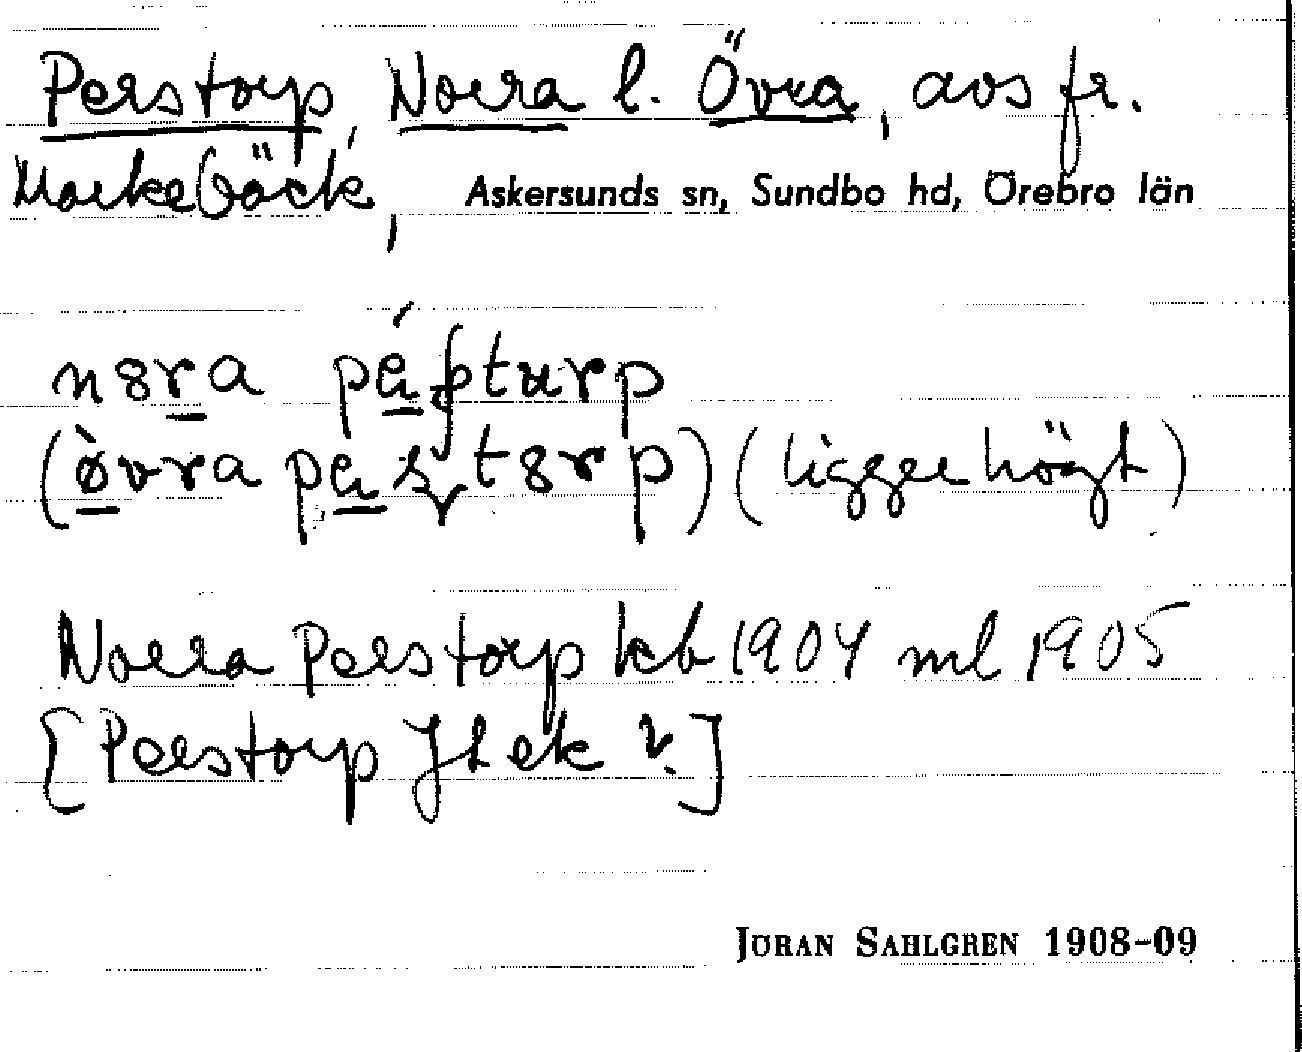 Perstorp, Norra l. Övra, avs fr.
Markebäck, Askersunds sn, Sundbo hd, Örebro län
(ligger högt)
Norra Perstorp kb 1904 ml 1905
[Perstorp JLek v.]
JÖRAN SAHLGREN 1908-09